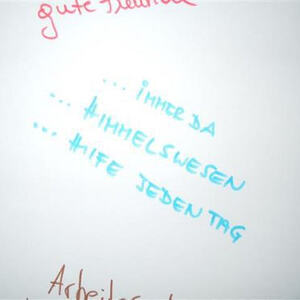 gute Freunde
... IMMER DA
... HIMMELSWESEN
... HILFE JEDEN TAG
Arbeiter